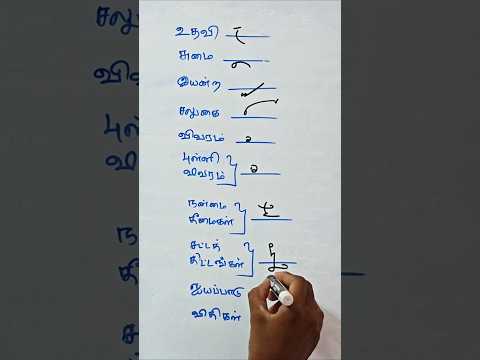 உதவி
சுமை
இயன்ற
சலுகை
விவரம்
புள்ளி
விவரம்
நன்மை
தீமைகள்
சட்டத்
திட்டங்கள்
ஐயப்பாடு
விதிகள்